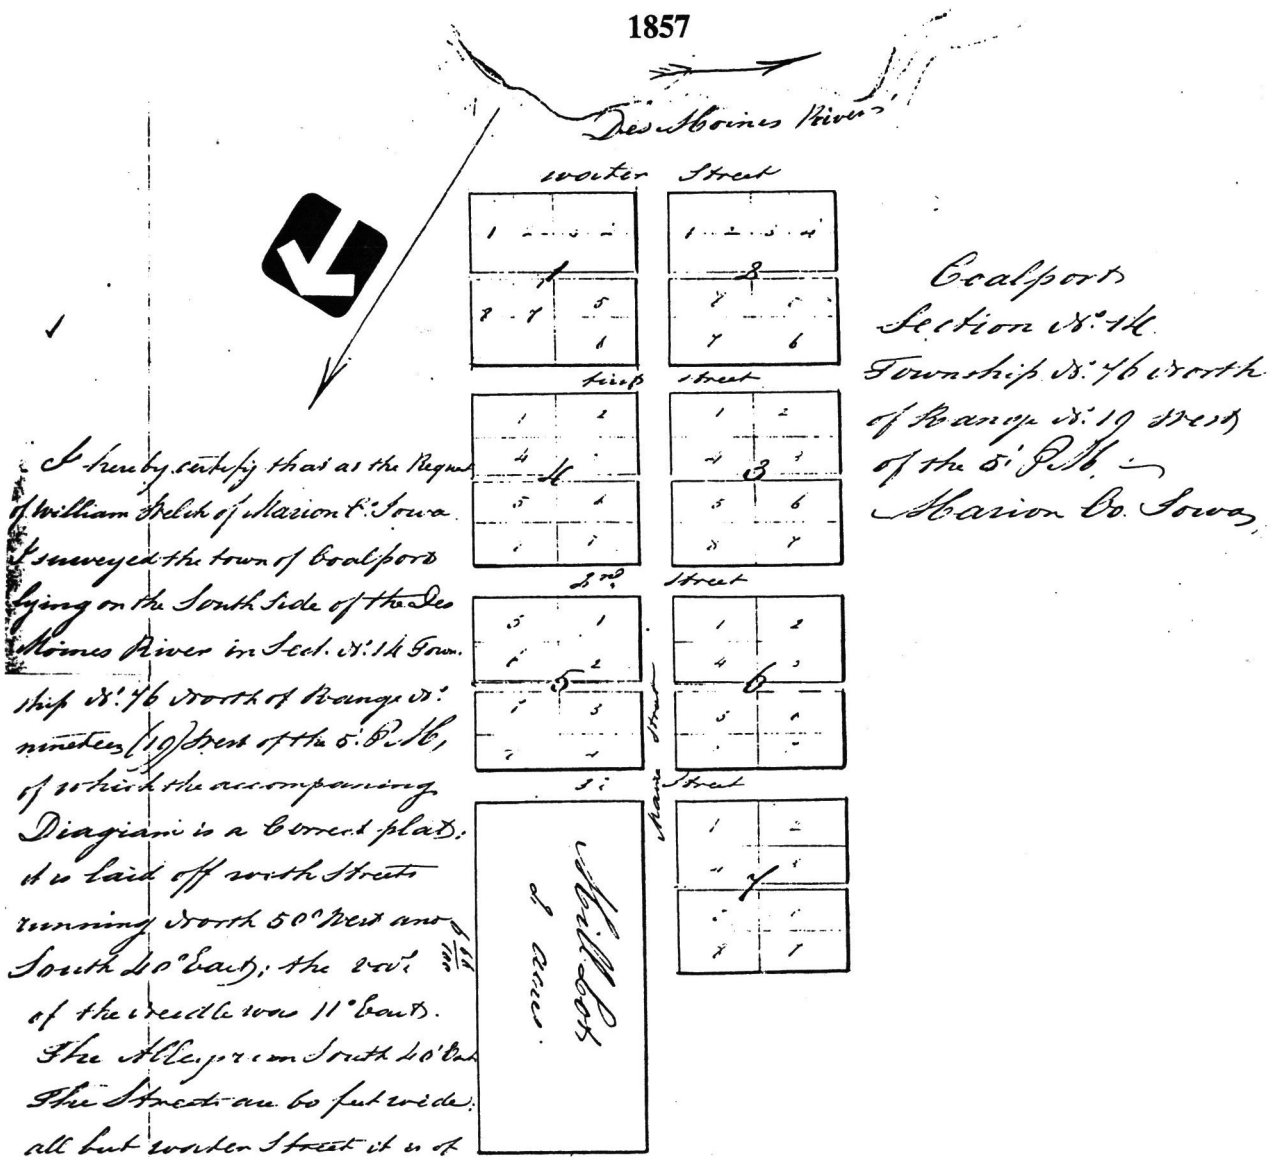 1857
Des Moines River
water Street
1 2 3
1 2 3 4
1
2
8 7 5
6
8 5
7 6
first street
1 2
4
4
5 6
1 2
4 3
3
5 6
8 7
2nd. street
5 1
6 2
5
3
1 2
4 3
6
5
Main Street
Street
1 2
4 3
7
Mill Lot
2 acres
Coalport
Section No. 14
Township No. 76 North
of Range No. 19 West
of the 5' P.M.
Marion Co. Iowa,
I hereby certify that at the Request
of William Welch of Marion Co. Iowa
I surveyed the town of Coalport
lying on the South Side of the Des
Moines River in Sect. No. 14 Town-
ship No. 76 North of Range No.
nineteen (19) West of the 5. P.M,
of which the accompaning
Diagram is a Correct plat;
it is laid off with Streets
running North 50° West and
South 40° East; the
of the needle was 11° East.
The Alleys run South 40° East
The Streets are 60 feet wide;
all but water Street it is of